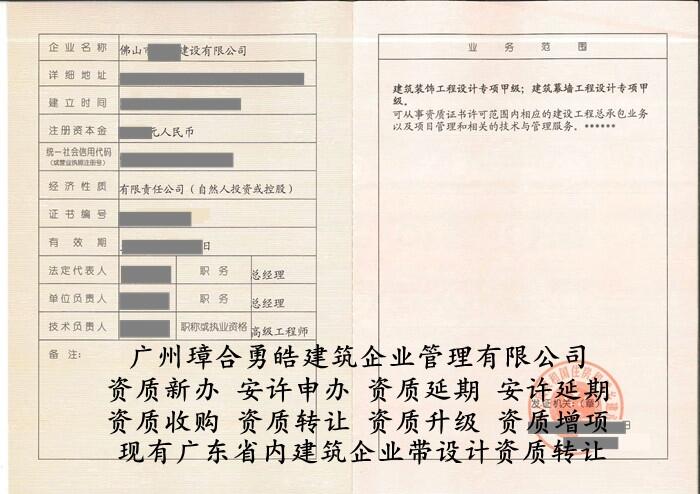 企业名称 佛山市 建设有限公司
详细地址
建立时间
注册资本金 元人民币
统一社会信用代码
(或营业执照注册号)
经济性质 有限责任公司（自然人投资或控股）
证书编号
有效期 日
法定代表人 职务 总经理
单位负责人 职务 总经理
技术负责人 职称或执业资格 高级工程师
备注:
业务范围
建筑装饰工程设计专项甲级；建筑幕墙工程设计专项甲
级。
可从事资质证书许可范围内相应的建设工程总承包业务
以及项目管理和相关的技术与管理服务。******
发证机关:(章)
广州璋合勇皓建筑企业管理有限公司
资质新办 安许申办 资质延期 安许延期
资质收购 资质转让 资质升级 资质增项
现有广东省内建筑企业带设计资质转让